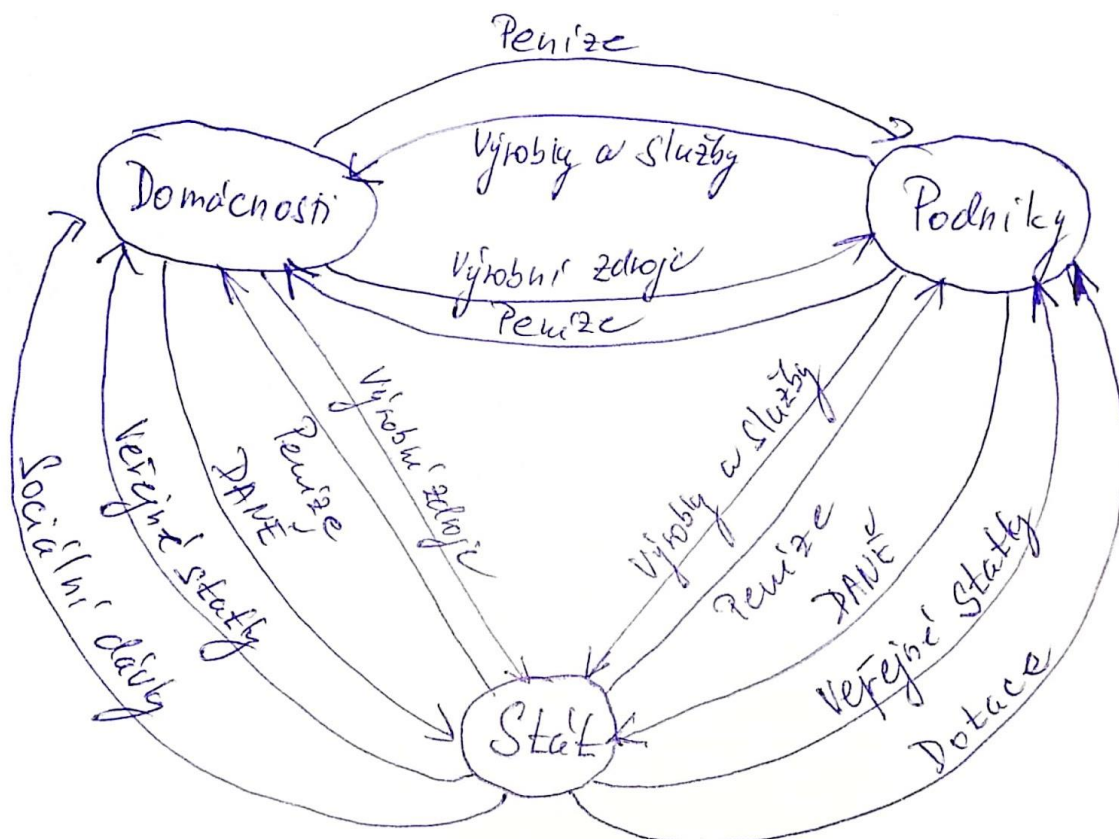 Peníze
Výrobky a služby
Domácnosti
Podniky
Výrobní zdroje
Peníze
Sociální dávky
Veřejné statky
DANĚ
Peníze
Výrobní zdroje
Výrobky a služby
Peníze
DANĚ
Veřejné Statky
Dotace
Stát